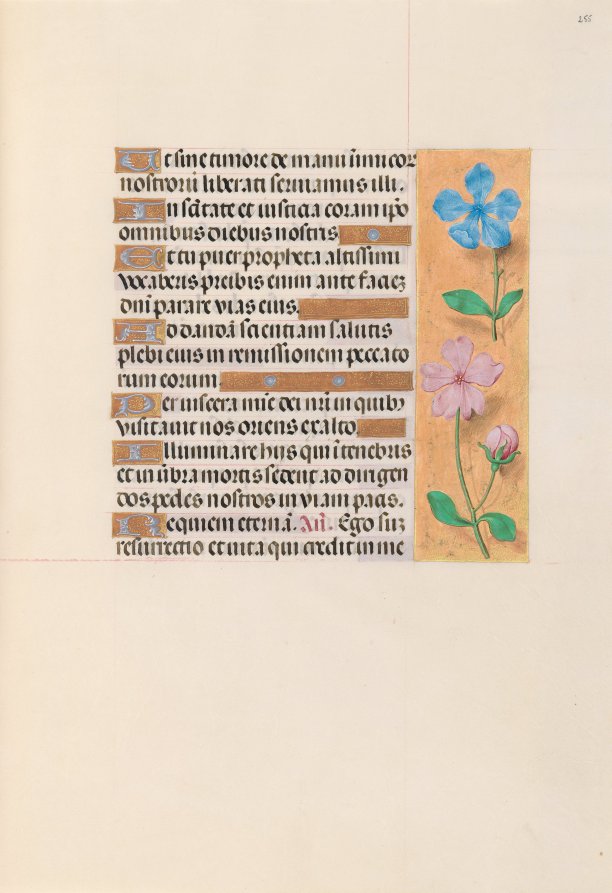 255
Ut sine timore de manu inimicor
nostrorū liberati seruiamus illi.
In sātate et iusticia coram ip̄o
omnibus diebus nostris.
Et tu puer propheta altissimi
vocaberis preibis enim ante faciē
dn̄i parare vias eius.
Ad dandā scientiam salutis
plebi eius in remissionem pecca to
rum eorum.
Per uiscera mīe dei nr̄i in quibꝫ
visitauit nos oriens ex alto.
Illuminare hijs qui ī tenebris
et in ūbra mortis sedent ad dirigen
dos pedes nostros in viam pacis.
Requiem eternā. An̄. Ego sum
resurrectio et uita qui credit in me